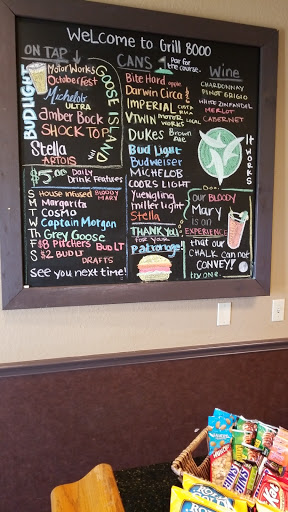 WeLcome to Grill 8000
ON TAP
BUD LIGHT
MotorWorks
Octoberfest
Michelob
ULTRA
Amber Bock
SHOCK TOP
Stella
ARTOIS
GOOSE ISLAND
CANS
Par for
the course.
Bite Hard apple
Darwin Circa
IMPERIAL COSTA
RICA
V Twin MOTOR LOCAL
WORKS
Dukes Brown
Ale
Bud Light
Budweiser
MICHELOB
COORS LIGHT
Yuengling
miller Light
Stella
Wine
CHARDONNAY
PINOT GRIGIO
WHITE ZINFANDEL
MERLOT
CABERNET
IT WORKS
$5.00 Daily
Drink Features
S House infused BLOODY
MARY
M Margarita
T Cosmo
W Captain Morgan
Th Grey Goose
F $8 Pitchers BUD LT
S $2 BUD LT
DRAFTS
see you next time!
THANK YOU
for your
Patronage!
our BLOODY
Mary
is an
EXPERIENCE
that our
CHALK can not
CONVEY!
try one.
ROLD
GOLD
Kit